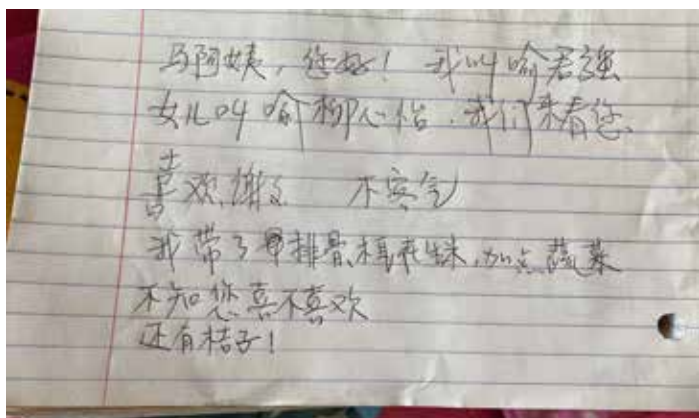 马阿姨，您好！我叫喻君强
女儿叫喻柳心怡，我们来看您
喜欢谢了 不客气
我带了排骨、花生米，加点蔬菜
不知您喜不喜欢
还有桔子！